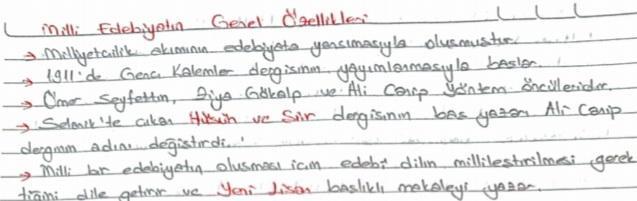 Milli Edebiyatın Genel Özellikleri
→ Milliyetcilik akımının edebiyata yansımasıyla oluşmuştur.
→ 1911'de Genc Kalemler dergisinin yayımlanmasıyla baslar.
→ Ömer Seyfettin, Ziya Gökalp ve Ali Canip Yöntem öncülleridir.
→ Selanik'te cıkan Hüsün ve Şiir dergisinin baş yazarı Ali Canip
derginin adını değiştirdi.
→ Milli bir edebiyatın oluşması icin edebi dilin millileştirilmesi gerek
tiğini dile getirir ve Yeni Lisan baslıklı makaleyi yazar.